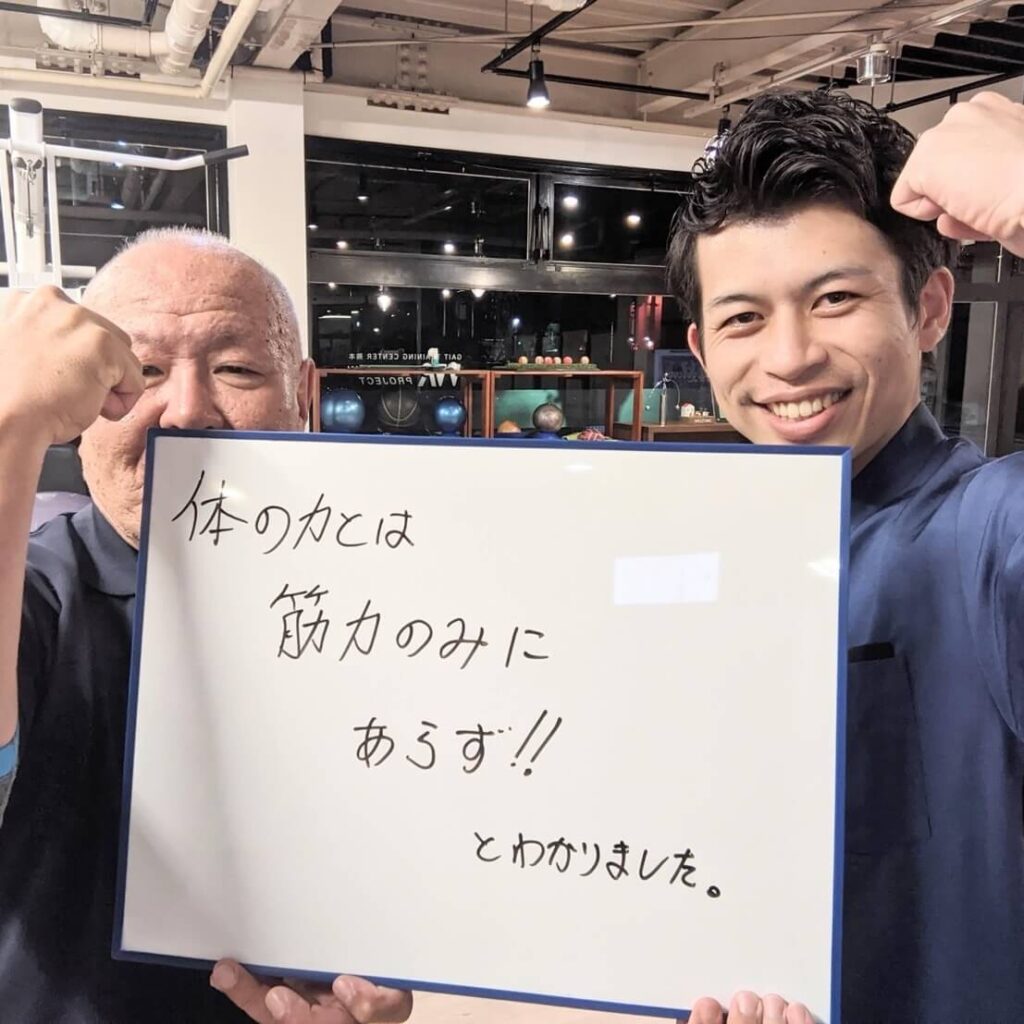 体の力とは
筋力のみに
あらず!!
とわかりました。
GAIT TRAINING CENTER 熊本
PROJECT